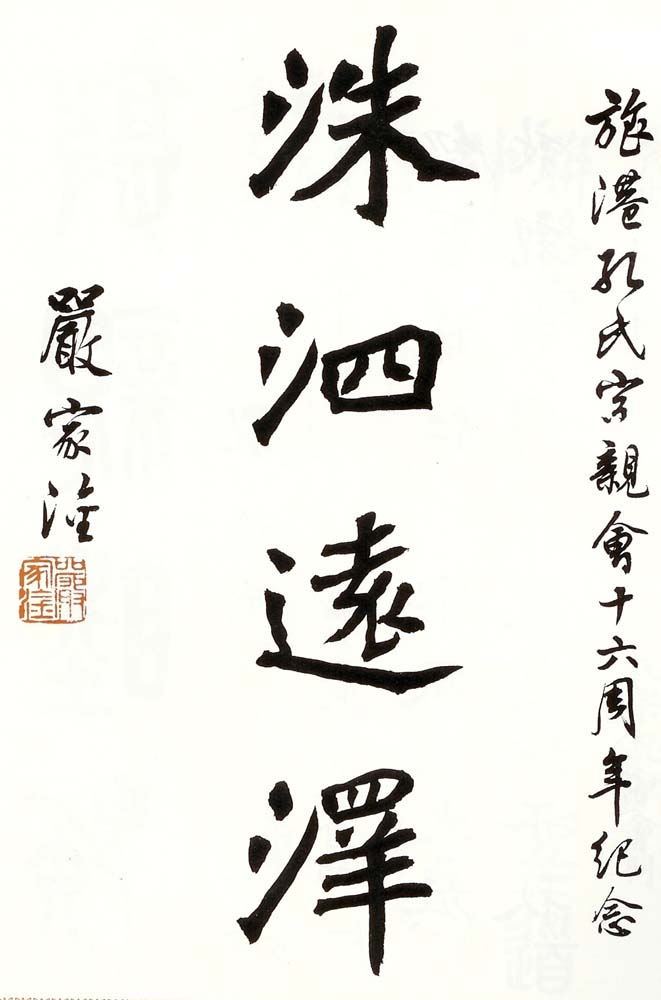 旅港孔氏宗親會十六周年紀念
洙泗遠澤
嚴家淦
嚴家淦